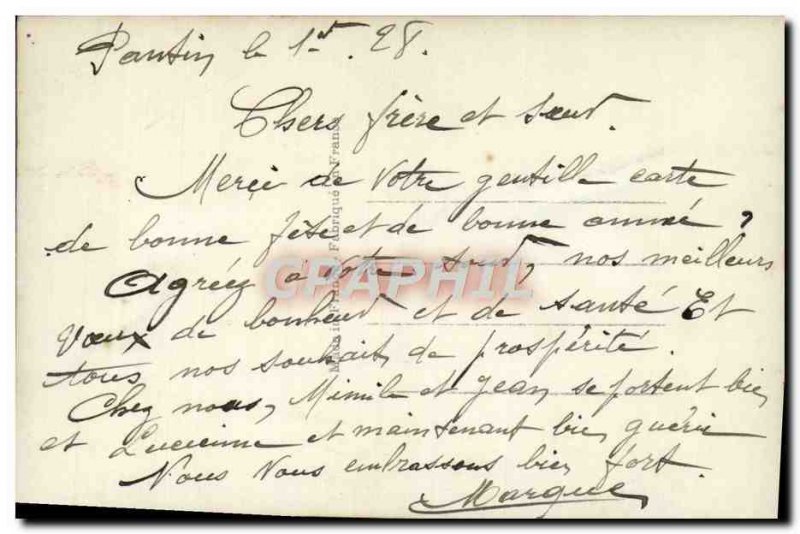 Pantin le 1er. 28.
Chers frère et sœur.
Merçi de votre gentille carte
de bonne fête et de bonne année,
Agréez à votre tour, nos meilleurs
vœux de bonheur et de santé Et
tous nos souhaits de prospérité.
Chez nous, Mimile et Jean se portent bien
et Lucienne et maintenant bien guérie
Nous vous embrassons bien fort.
Margue
Made in France Fabriqué en France
CPAPHIL